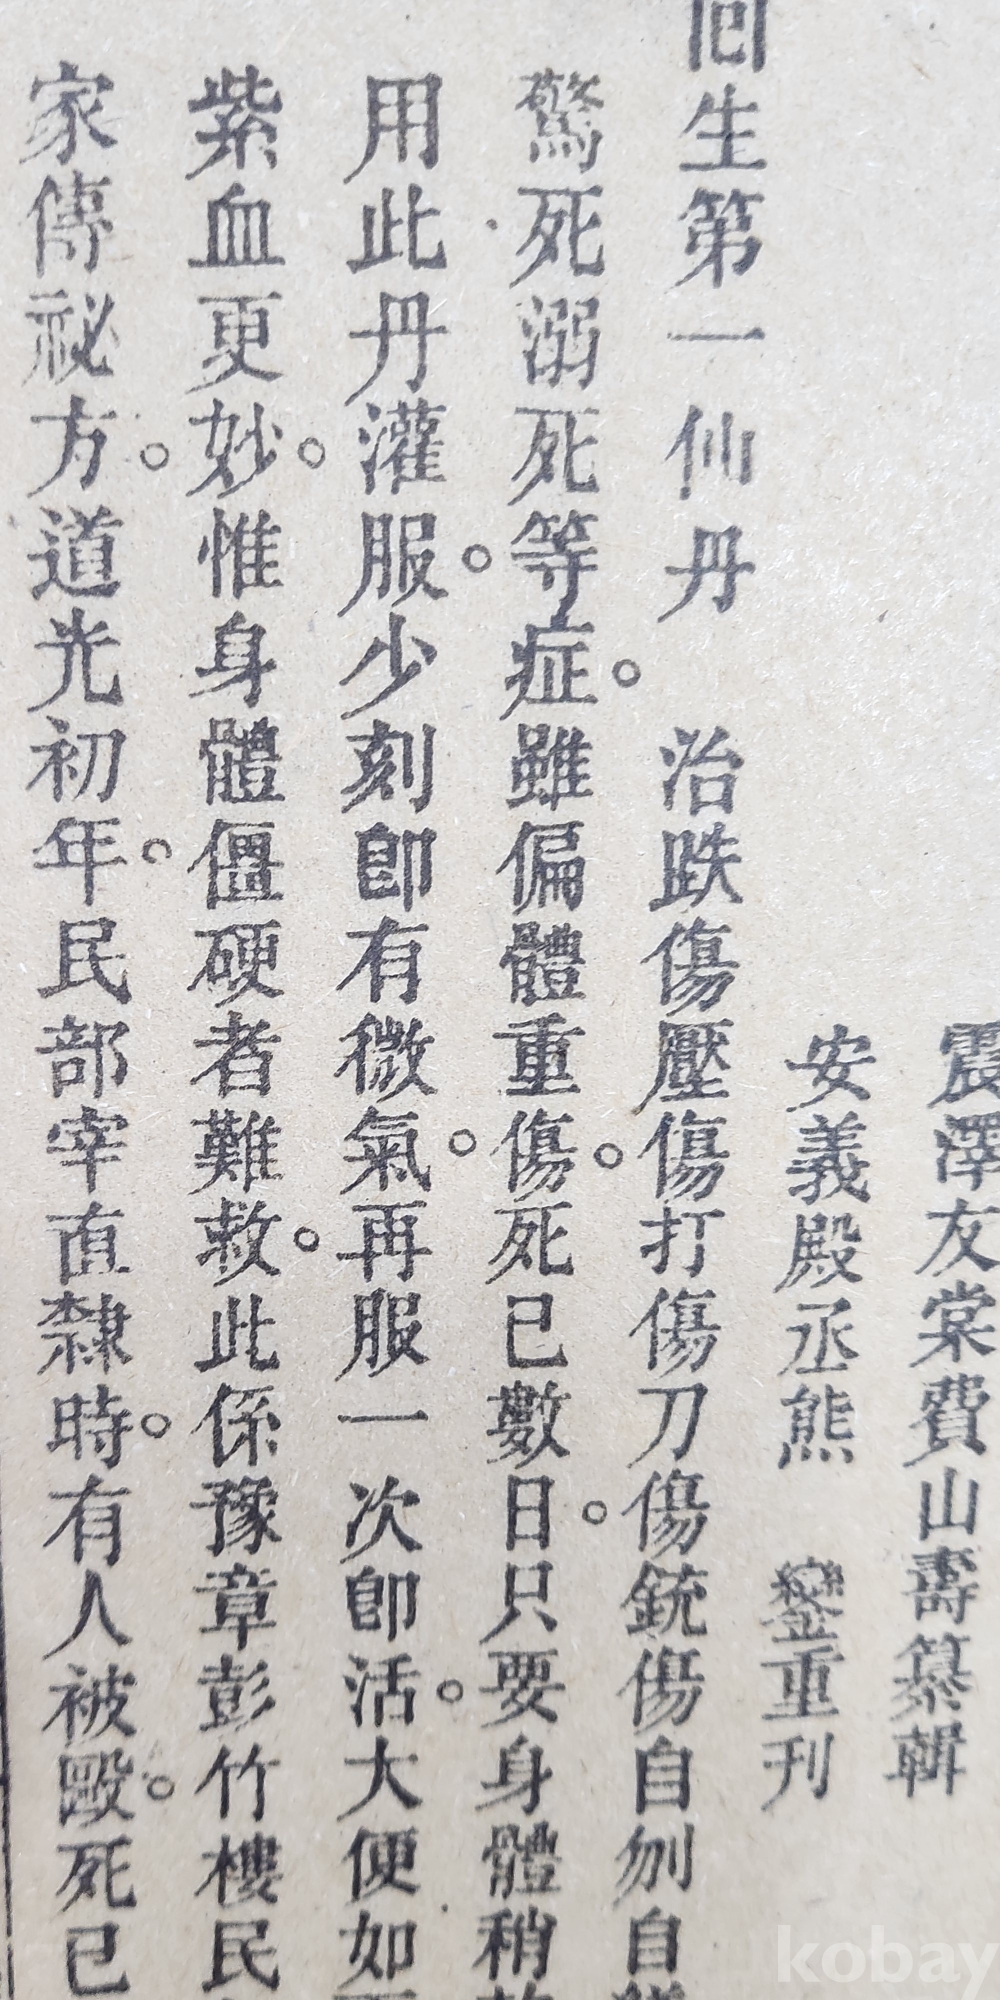 震澤友棠費山壽纂輯
安義殿丞熊 鎣重刊
回生第一仙丹 治跌傷壓傷打傷刀傷銃傷自刎自
驚死溺死等症。雖偏體重傷。死已數日。只要身體稍
用此丹灌服。少刻卽有微氣。再服一次卽活。大便如
紫血更妙。惟身體僵硬者難救。此係豫章彭竹樓民
家傳祕方。道光初年。民部宰直隸時。有人被毆。死已
kobay